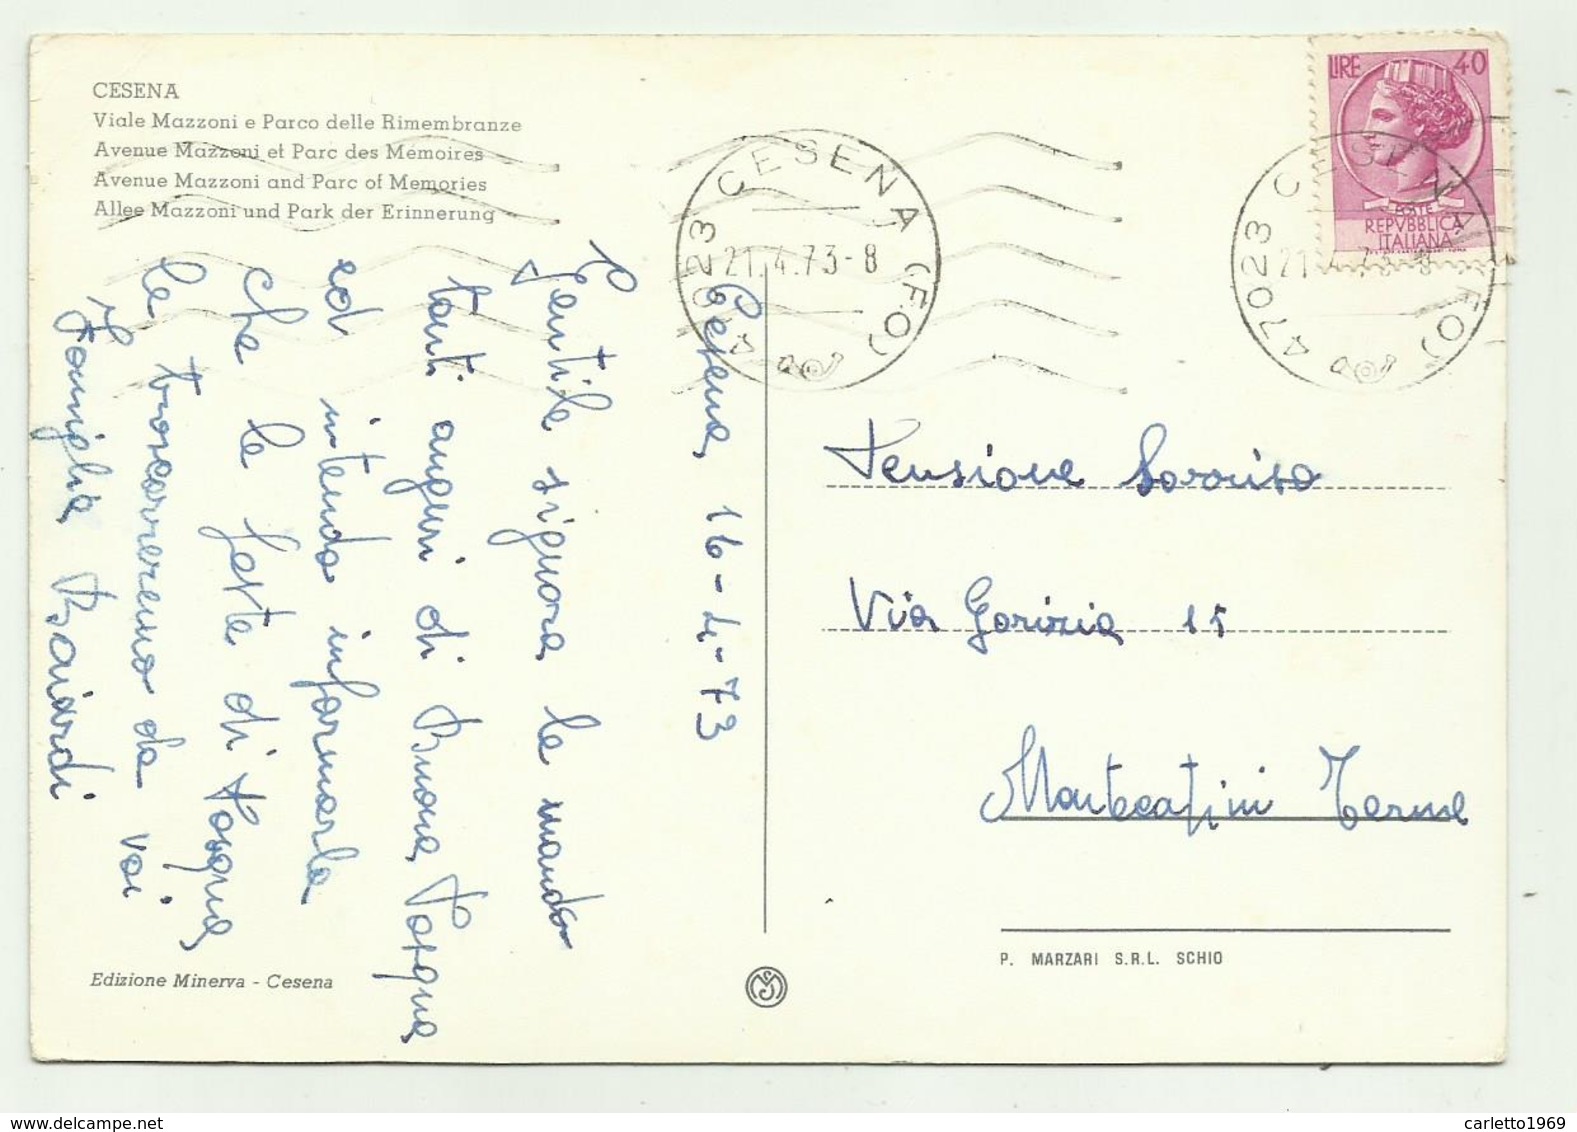 CESENA
Viale Mazzoni e Parco delle Rimembranze
Avenue Mazzoni et Parc des Memoires
Avenue Mazzoni and Parc of Memories
Allee Mazzoni und Park der Erinnerung
Cesena, 16-4-73
Gentile signora le mando
tanti auguri di Buona Pasqua
ed intendo informarla
che le feste di Pasqua,
le trascorreremo da voi
Famiglia Baiardi
Edizione Minerva - Cesena
47023 CESENA (FO)
21.4.73-8
LIRE 40
POSTE
REPVBBLICA
ITALIANA
47023 CESENA (FO)
21.4.73-8
Pensione Sorriso
Via Gorizia 15
Montecatini Terme
P. MARZARI S.R.L. SCHIO
carletto1969